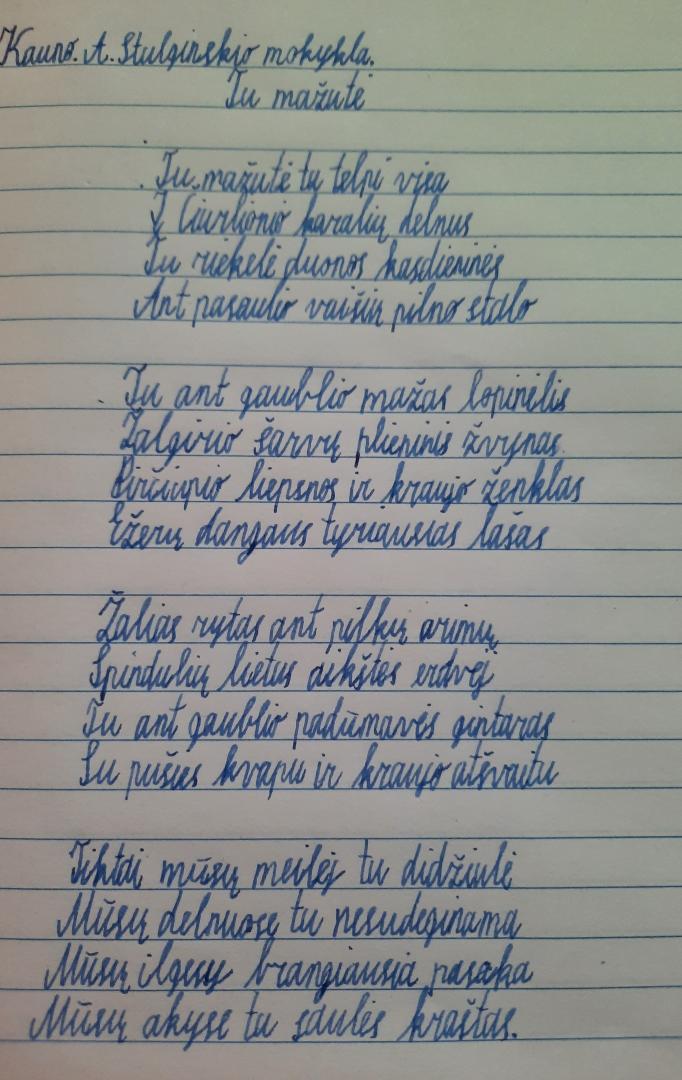 Kauno. A. Stulginskio mokykla.
Tu mažutė
Tu mažutė tu telpi visa
Į Čiurlionio karalių delnus
Tu riekelė duonos kasdieninės
Ant pasaulio vaišių pilno stalo
Tu ant gaublio mažas lopinėlis
Žalgirio šarvų plieninis žvynas.
Pirčiupio liepsnos ir kraujo ženklas
Ežerų dangaus tyriausias lašas
Žalias rytas ant pilkų arimų
Spindulių lietus aikštės erdvėj
Tu ant gaublio padūmavęs gintaras
Su pušies kvapu ir kraujo atšvaitu
Tiktai mūsų meilėj tu didžiulė
Mūsų delnuose tu nesudeginama
Mūsų ilgesy brangiausia pasaka
Mūsų akyse tu saulės kraštas.